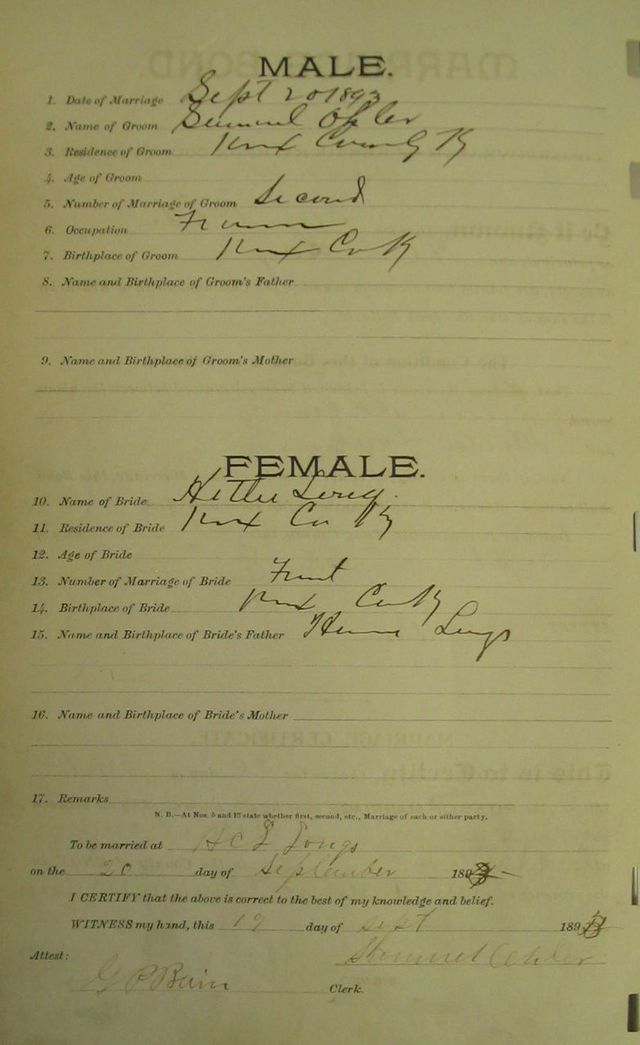 MALE.
1. Date of Marriage Sept 20 1893
2. Name of Groom Samuel Ohler
3. Residence of Groom Knox County Ky
4. Age of Groom
5. Number of Marriage of Groom Second
6. Occupation Farmer
7. Birthplace of Groom Knox Co Ky
8. Name and Birthplace of Groom's Father
9. Name and Birthplace of Groom's Mother
FEMALE.
10. Name of Bride Hettie
11. Residence of Bride Knox Co Ky
12. Age of Bride
13. Number of Marriage of Bride First
14. Birthplace of Bride Knox Co Ky
15. Name and Birthplace of Bride's Father
16. Name and Birthplace of Bride's Mother
17. Remarks
N. B.—At Nos. 5 and 13 state whether first, second, etc., Marriage of each or either party.
To be married at
on the 20 day of September 1893
I CERTIFY that the above is correct to the best of my knowledge and belief.
WITNESS my hand, this 19 day of Sept 1893
Ohler
Attest:
Clerk.